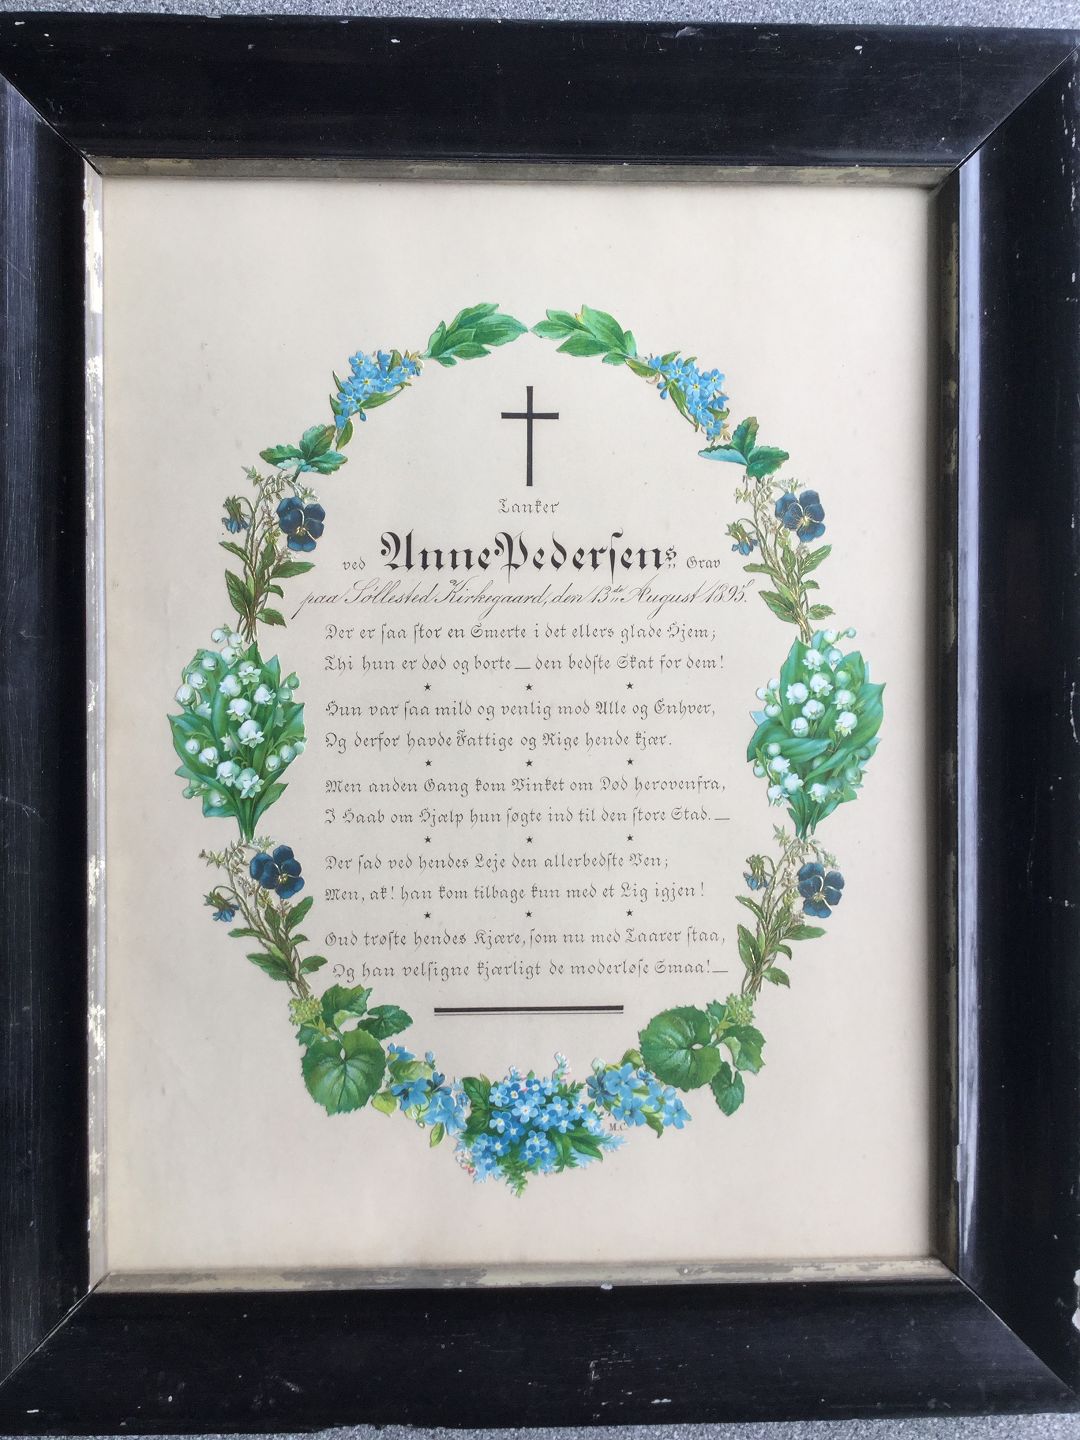 Tanker
ved Anne Pedersens Grav
paa Søllested Kirkegaard, den 13de August 1895.
Der er saa stor en Smerte i det ellers glade Hjem;
Thi hun er død og borte — den bedste Skat for dem!
Hun var saa mild og venlig mod Alle og Enhver,
Og derfor havde Fattige og Rige hende kjær.
Men anden Gang kom Vinket om Død herovenfra,
I Haab om Hjælp hun søgte ind til den store Stad. —
Der sad ved hendes Leje den allerbedste Ven;
Men, ak! han kom tilbage kun med et Lig igjen!
Gud trøste hendes Kjære, som nu med Taarer staa,
Og han velsigne kjærligt de moderløse Smaa! —
M.C.